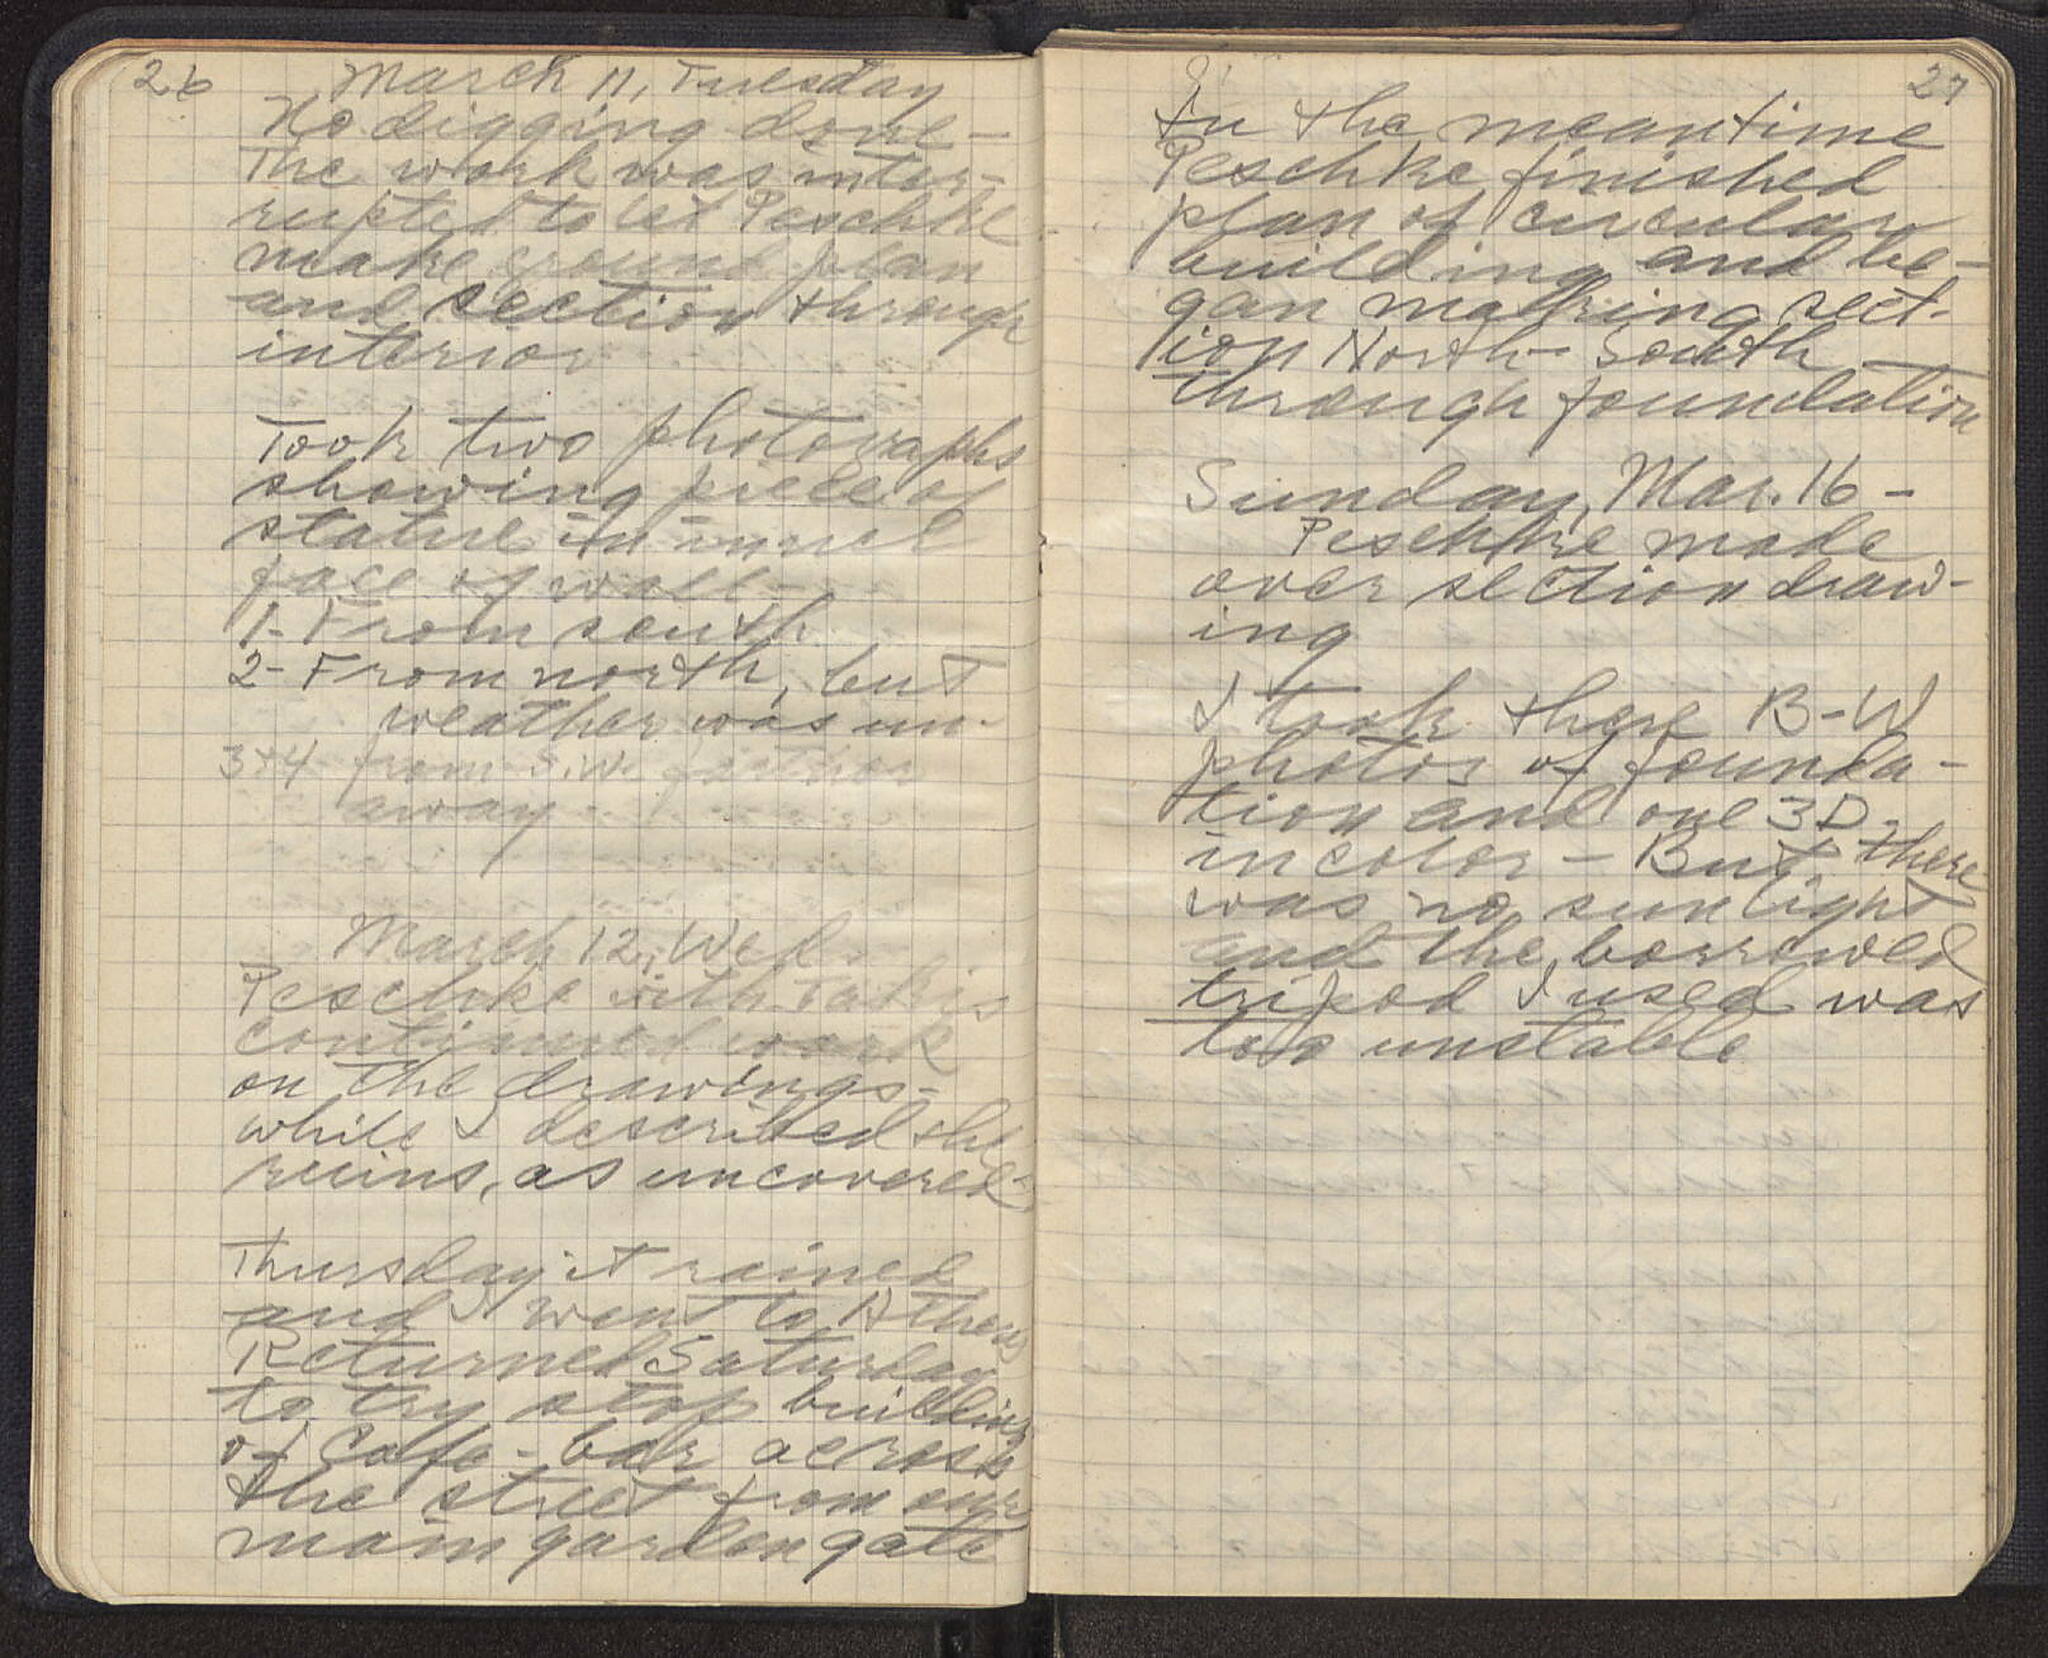 26
March 11, Tuesday
No digging done -
The work was inter-
rupted to let Peschke
make ground plan
and section through
interior
Took two photographs
showing piece of
statue in inner
face of wall -
1- From south
2- From north, but
weather was un-
3+4 from S.W. farther
away -
March 12, Wed.
Peschke with Takis
continued work
on the drawings -
while I described the
ruins, as uncovered -
Thursday it rained
and I went to Athens
Returned Saturday
to try stop building
of Cafe-bar across
the street from our
main garden gate
27
In the meantime
Peschke finished
plan of circular
building and be-
gan making sect-
ion North-South
through foundation
Sunday, Mar. 16 -
Peschke made
over section draw-
ing
I took there B-W
photos of founda-
tion and one 3D
in color - But there
was no sunlight
and the borrowed
tripod I used was
too unstable